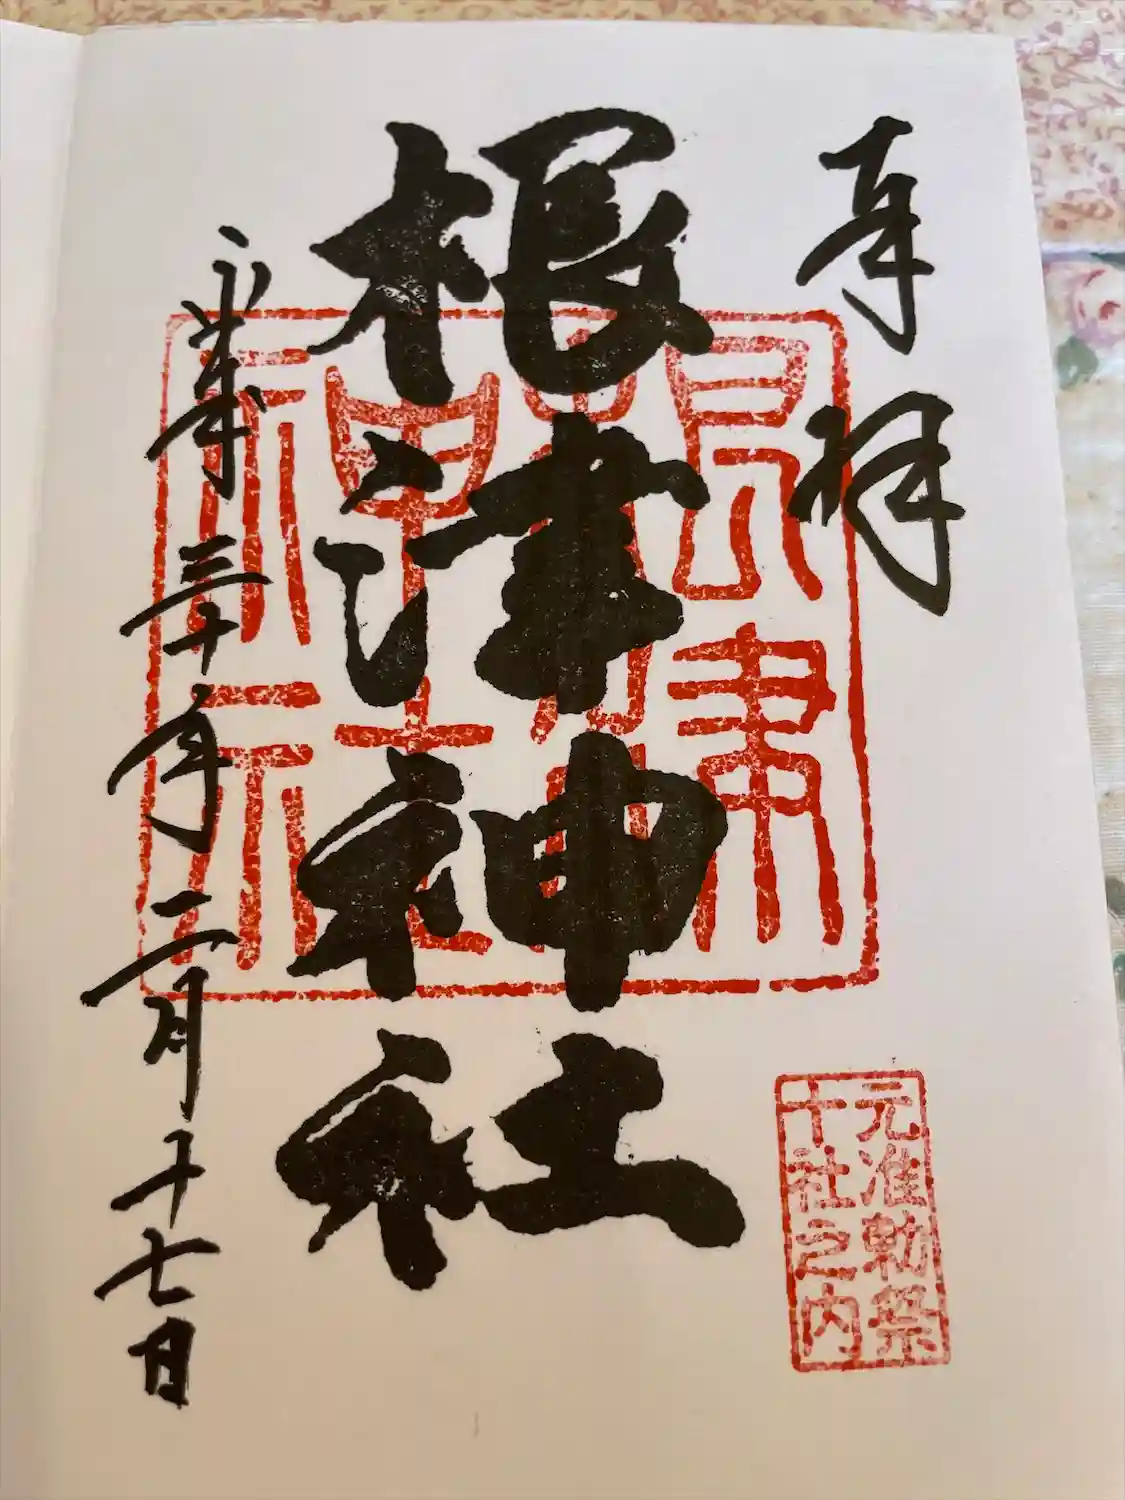 奉拝
元准勅祭
十社之内
根津神社
根津
神社
平成三十年二月十七日